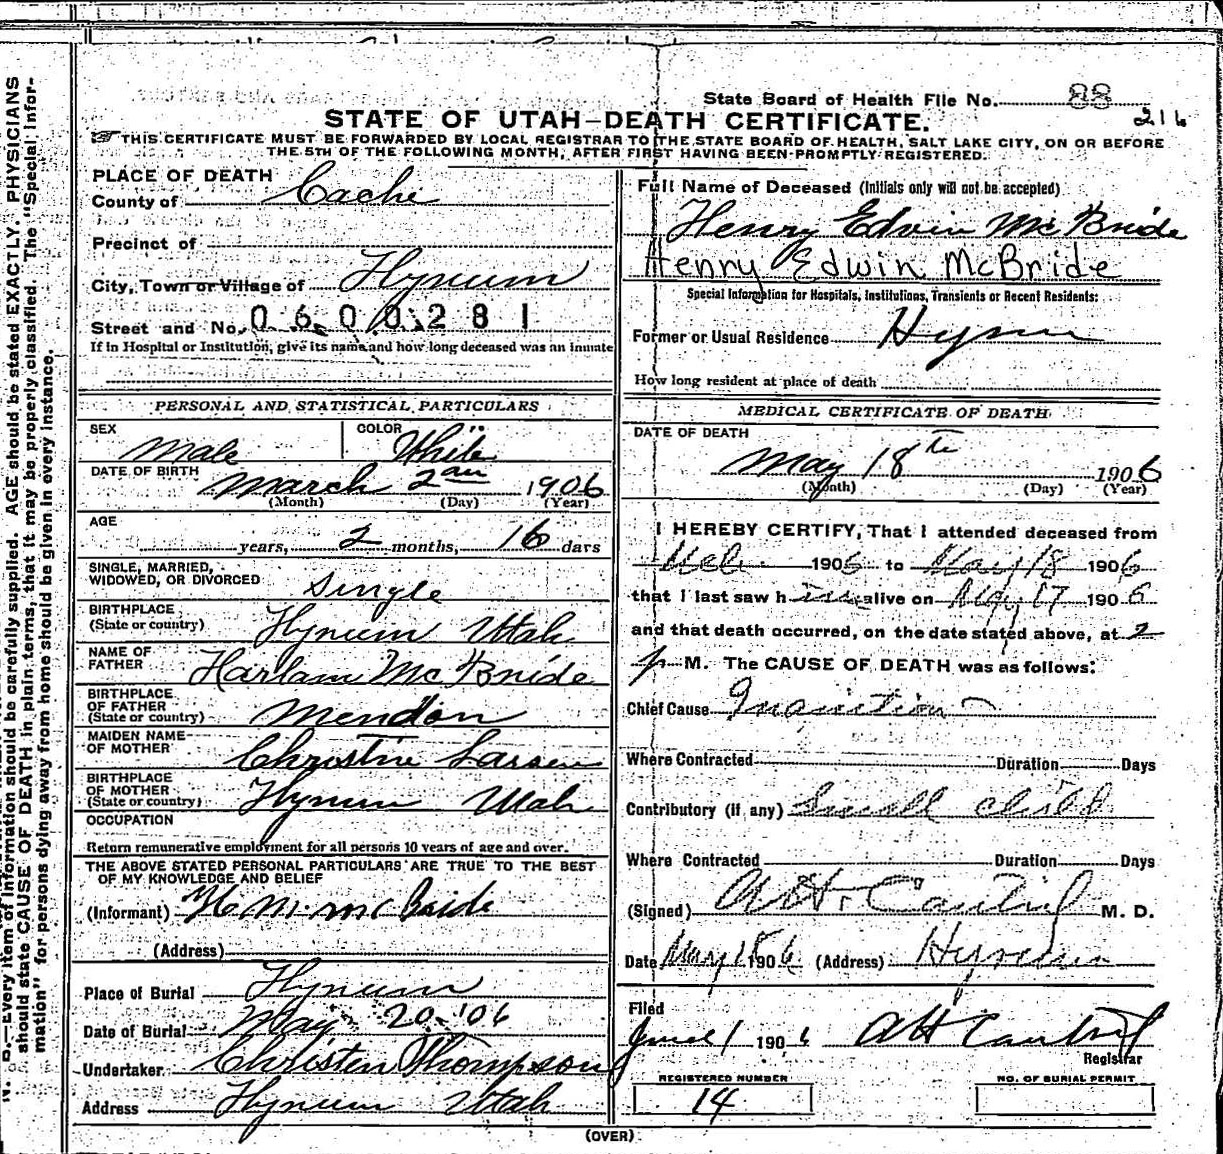 State Board of Health File No. 88
216
STATE OF UTAH—DEATH CERTIFICATE.
THIS CERTIFICATE MUST BE FORWARDED BY LOCAL REGISTRAR TO THE STATE BOARD OF HEALTH, SALT LAKE CITY, ON OR BEFORE
THE 5TH OF THE FOLLOWING MONTH, AFTER FIRST HAVING BEEN PROMPTLY REGISTERED.
PLACE OF DEATH
County of Cache
Precinct of
City, Town or Village of Hyrum
Street and No. 0600281
If in Hospital or Institution, give its name and how long deceased was an inmate
PERSONAL AND STATISTICAL PARTICULARS
SEX Male
COLOR White
DATE OF BIRTH March 2 1906
(Month) (Day) (Year)
AGE
years, 2 months, 16 days
SINGLE, MARRIED,
WIDOWED, OR DIVORCED Single
BIRTHPLACE
(State or country) Hyrum Utah
NAME OF
FATHER Harlam McBride
BIRTHPLACE
OF FATHER
(State or country) Mendon
MAIDEN NAME
OF MOTHER Christie Larsen
BIRTHPLACE
OF MOTHER
(State or country) Hyrum Utah
OCCUPATION
Return remunerative employment for all persons 10 years of age and over.
THE ABOVE STATED PERSONAL PARTICULARS ARE TRUE TO THE BEST
OF MY KNOWLEDGE AND BELIEF
(Informant) H M. McBride
(Address)
Place of Burial Hyrum
Date of Burial May 20-'06
Undertaker Christen Thompson
Address Hyrum Utah
Full Name of Deceased (Initials only will not be accepted)
Henry Edwin McBride
Henry Edwin McBride
Special Information for Hospitals, Institutions, Transients or Recent Residents:
Former or Usual Residence Hyrum
How long resident at place of death
MEDICAL CERTIFICATE OF DEATH
DATE OF DEATH
May 18th 1906
(Month) (Day) (Year)
I HEREBY CERTIFY, That I attended deceased from
1906 to May 18 1906
that I last saw him alive on May 17 1906
and that death occurred, on the date stated above, at 2
p M. The CAUSE OF DEATH was as follows:
Chief Cause Inanition
Where Contracted Duration Days
Contributory (if any) Small child
Where Contracted Duration Days
(Signed) M. D.
Date May 1906 (Address) Hyrum
Filed
June 1 1906
Registrar
REGISTERED NUMBER
14
NO. OF BURIAL PERMIT
(OVER)
N. B.—Every item of information should be carefully supplied. AGE should be stated EXACTLY. PHYSICIANS
should state CAUSE OF DEATH in plain terms, that it may be properly classified. The "Special Infor-
mation" for persons dying away from home should be given in every instance.